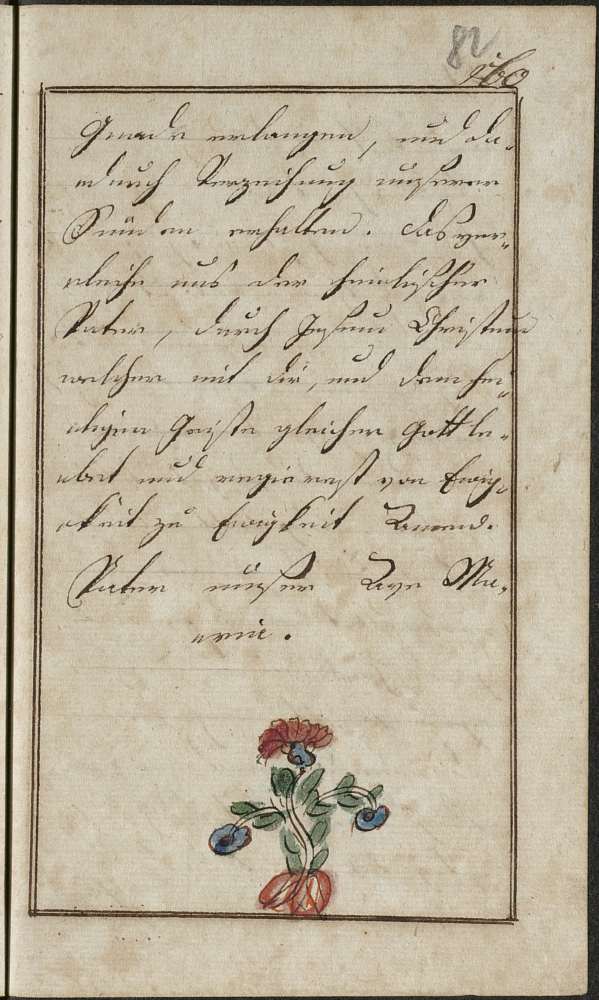 82
160
Gnade erlangen, und da„
durch Verzeihung unserer
Sünden erhalten. Das ver„
leihe uns der himlischer
Vater, durch Jesum Christum
welcher mit dir, und dem hei„
ligen Geiste gleicher Gott le„
bet und regierest von Ewig„
keit zu Ewigkeit Amend.
Vater unser Ave Ma„
aria.